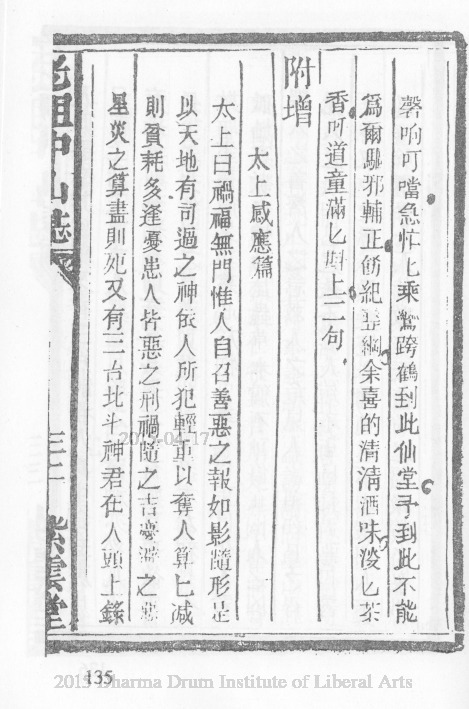 磬响叮噹急忙匕乘鸞跨鶴到此仙堂予到此不能
為爾驅邪輔正飭紀整綱余喜的清清酒味淡匕茶
香呵道童滿匕斟上二句
附增
太上感應篇
太上曰禍福無門惟人自召善惡之報如影隨形是
以天地有司過之神依人所犯輕重以奪人算匕减
則貧耗多逢憂患人皆惡之刑禍隨之吉慶避之惡
星災之算盡則死又有三台北斗神君在人頭上錄
老祖中山誌
三二
紫雲堂
2015-04-17
135
2015 Dharma Drum Institute of Liberal Arts